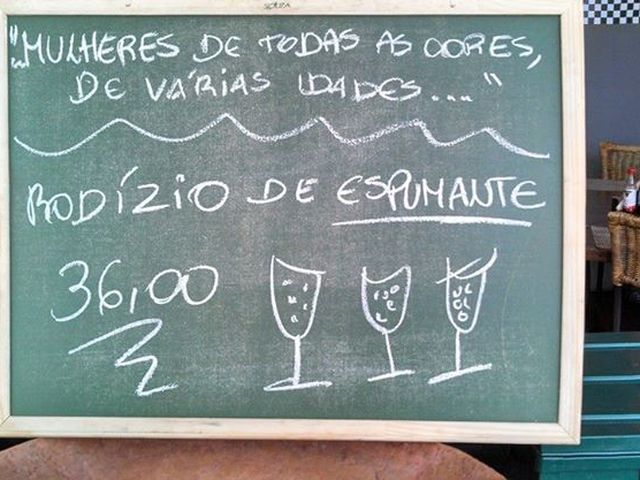 "...MULHERES DE TODAS AS CORES,
DE VÁRIAS IDADES..."
RODÍZIO DE ESPUMANTE
36,00